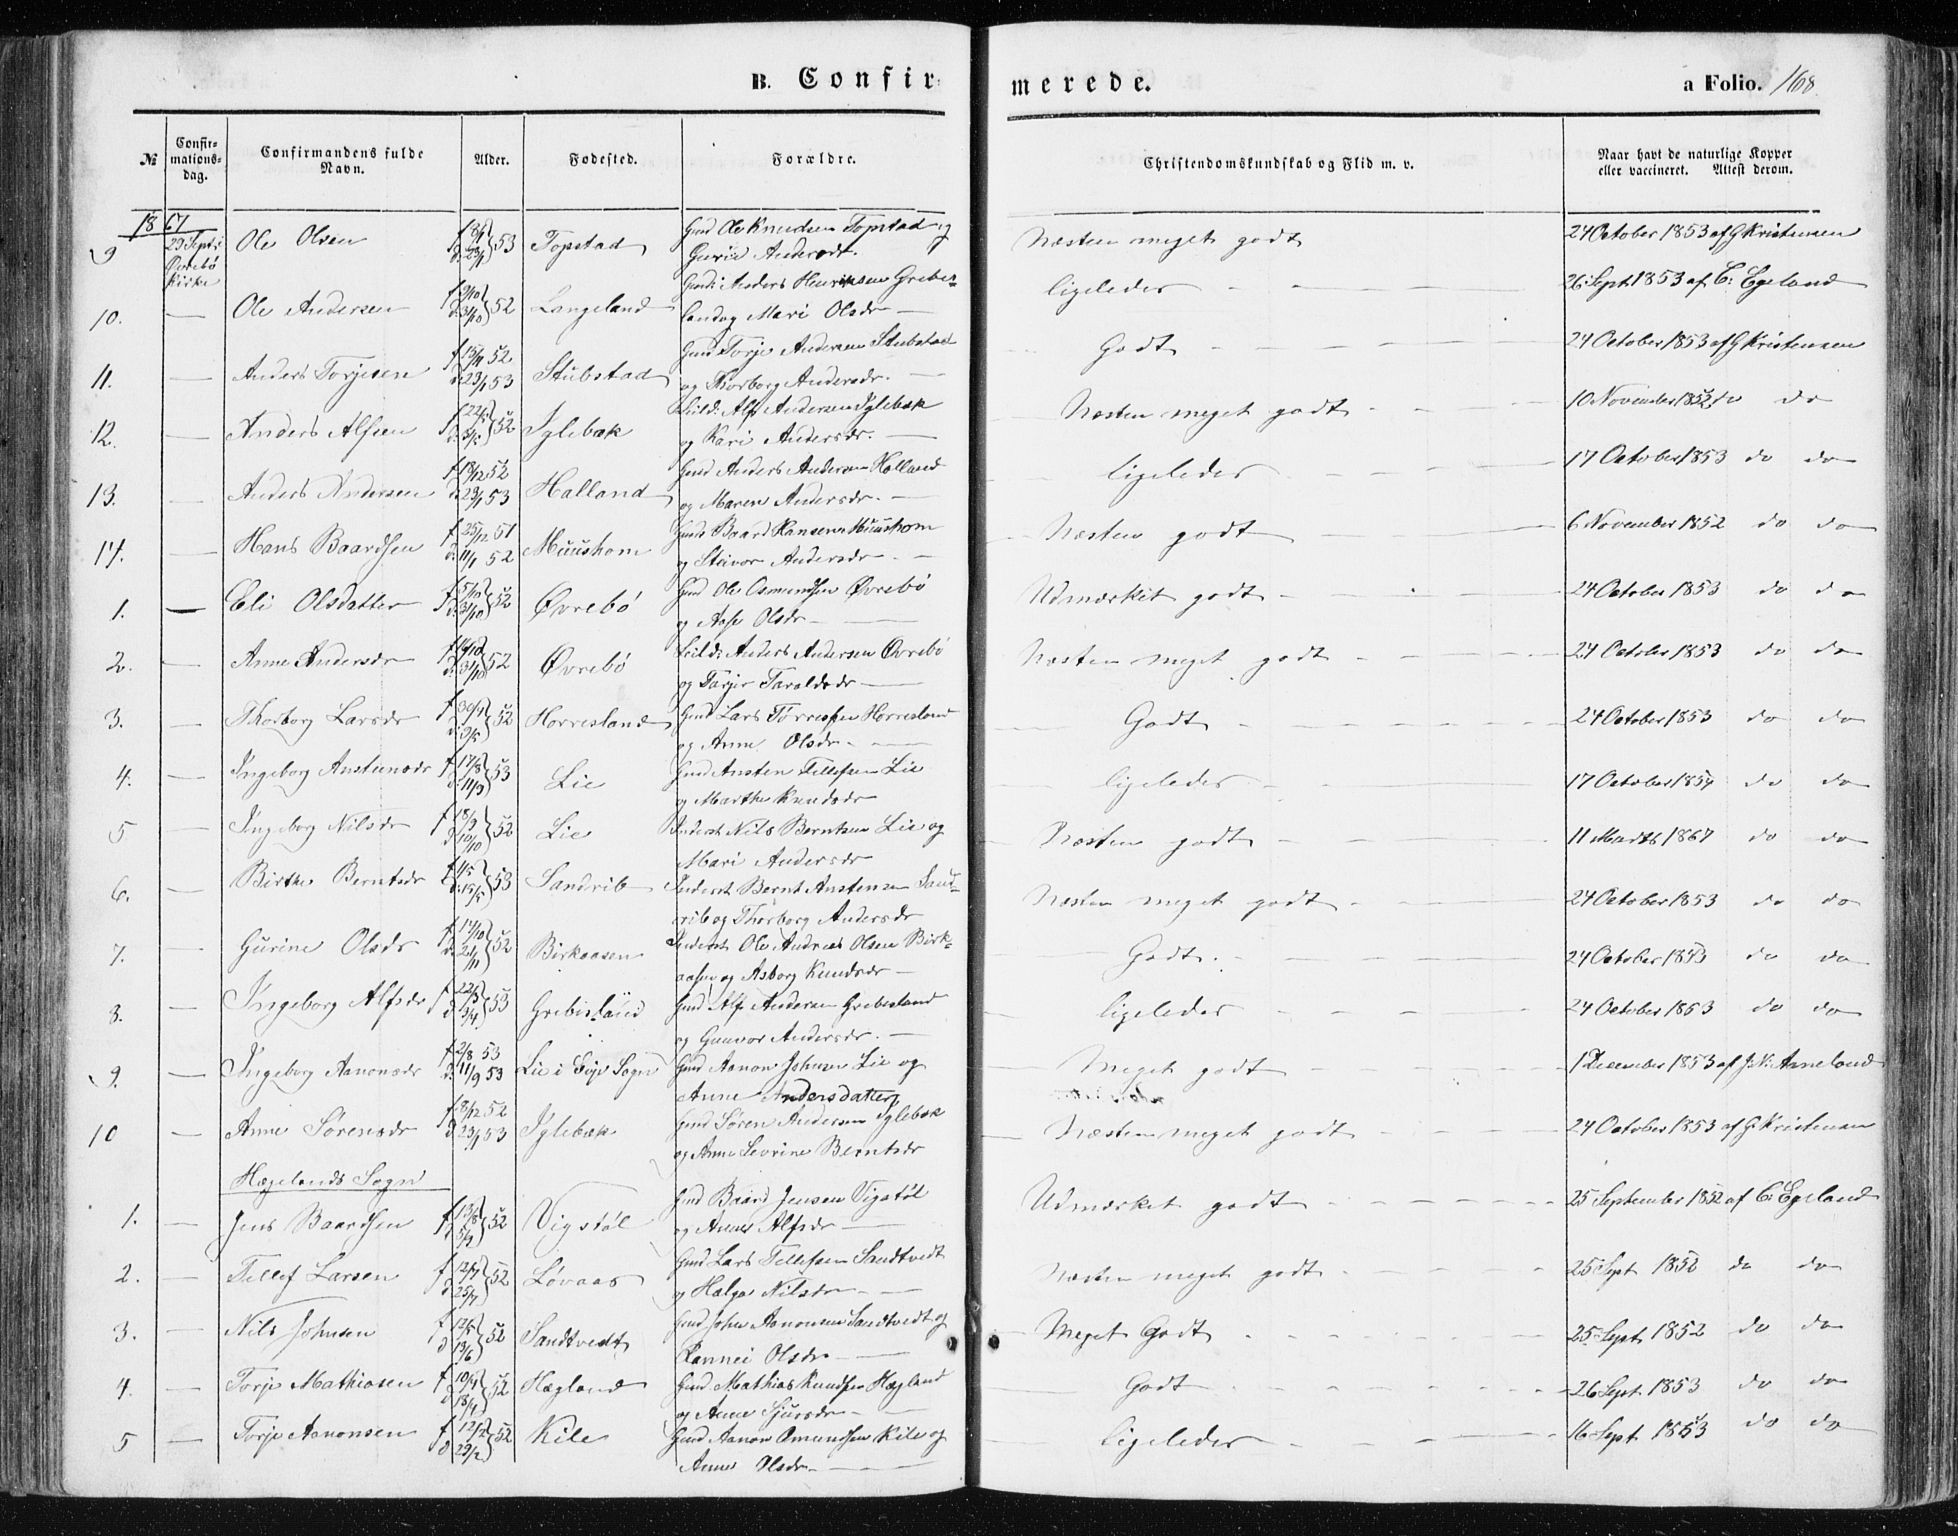 B. Confirmerede. a Folio. 168
№ Confirmations-dag. Confirmandens fulde Navn. Alder. Fødested. Forældre. Christendomskundskab og Flid m. v. Naar havt de naturlige Kopper eller vaccineret. Attest derom.
1867
9 29 Sept i Øvrebö Kirke Ole Olsen 53 Topstad Gmd Ole Knudsen Topstad og Næsten meget godt 24 October 1853 af G Kristensen
Gurie Andersdt.
10. — Ole Andersen f 9/10 d. 31/10 52 Langeland Gmd: Anders Henriksen Grebes- ligeledes 26 Sept 1853 af C. Egeland
land og Mari Olsdr —
11. — Anders Torjesen d. 23/1 53 Stubstad Gmd Torje Andersen Stubstad Godt 24 October 1853 af G Kristensen
og Thorborg Andersdr. —
12. — Anders Alfsen 52 Iglebæk Leild: Alf Andersen Iglebæk Næsten meget godt 10 November 1852 do do
og Kari Andersdr. —
13. — Anders Andersen f 18/12 52 d. 23/1 53 Halland Gmd Anders Andersen Halland ligeledes 17 October 1853 do do
og Maren Andersdr. —
14. — Hans Baardsen f 25/12 51 d. 11/1 52 Muushom Gmd Baard Hansen Muushom Næsten godt 6 November 1852 do do
og Steivor Andersdr —
1. — Eli Olsdatter 52 Øvrebö Gmd Ole Osmundsen Øvrebö Udmærket godt 24 October 1853 do do
og Aase Olsdr —
2. — Anne Andersdr d. 31/10 52 Øvrebö Leild: Anders Andersen Øvrebö Næsten meget godt 24 October 1853 do do
og Tarjer Taraldsdr —
3. — Thorborg Larsdr 52 Horresland Gmd Lars Törresen Horresland Godt 24 October 1853 do do
og Anne Olsdr —
4. — Ingeborg Anstensdr f 17/8 d. 11/9 53 Lie Gmd Ansten Tellefsen Lie ligeledes 17 October 1854 do do
og Marthe Knudsdr
5 — Ingeborg Nilsdr f 18/9 d 10/10 52 Lie Inderst Nils Berntsen Lie og Næsten godt 11 Marts 1867 do do
Mari Andersdr
6. — Birthe Berntsdr d. 15/5 53 Sandrib Inderst Bernt Anstensen Sand- Næsten meget godt 24 October 1853 do do
rib og Thorborg Andersdr
7. — Gurine Olsdr f 17/10 52 Birkaasen Inderst Ole Andreas Olsen Birk- Godt 24 October 1853 do do
aasen og Asborg Knudsdr —
8. — Ingeborg Alfsdr f 22/3 d 3/4 53 Grebesland Gmd Alf Andersen Grebesland ligeledes 24 October 1853 do do
og Gunvor Andersdr. —
9. — Ingeborg Aanonsdr f 2/8 53 d. 11/9 53 Lie i Sogn Gmd Aanon Johnsen Lie og Meget godt 1 December 1853 af J. N. Aaneland
Anne Andersdatter
10 — Anne Sörensdr f 8/12 52 d. 23/1 53 Iglebæk Gmd Sören Andersen Iglebæk Næsten meget godt 24 October 1853 af G. Kristensen
og Anne Sevrine Berntsdr
Hægelands Sogn
1. — Jens Baardsen f 13/8 d 5/9 52 Vigstöl Gmd Baard Jensen Vigstöl Udmærket godt 25 September 1852 af C. Egeland
og Anne Alfsdr —
2. — Tellef Larsen f 12/7 d 25/7 52 Lövaas Gmd Lars Tellefsen Sandtvedt Næsten meget godt 25 Sept 1852 do do
og Helga Nilsdr —
3. — Nils Johnsen d 13/6 52 Sandtvedt Gmd John Aanonsen Sandtvedt og Meget Godt 25 Sept 1852 do do
Rannei Olsdr —
4. — Torje Mathiasen f 10/4 d 18/4 52 Hægland Gmd Mathias Knudsen Hægland Godt 26 Sept. 1853 do do
og Anne Sjursdr —
5 — Torje Aanonsen f 12/2 d 29/2 52 Kile Gmd Aanon Omundsen Kile og ligeledes 16 Sept. 1853 do do
Anne Olsdr —